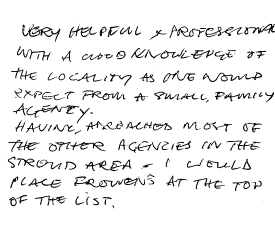 VERY HELPFUL & PROFESSIONAL
WITH A GOOD KNOWLEDGE OF
THE LOCALITY AS ONE WOULD
EXPECT FROM A SMALL, FAMILY
AGENCY.
HAVING APPROACHED MOST OF
THE OTHER AGENCIES IN THE
STROUD AREA - I WOULD
PLACE BROWENS AT THE TOP
OF THE LIST.